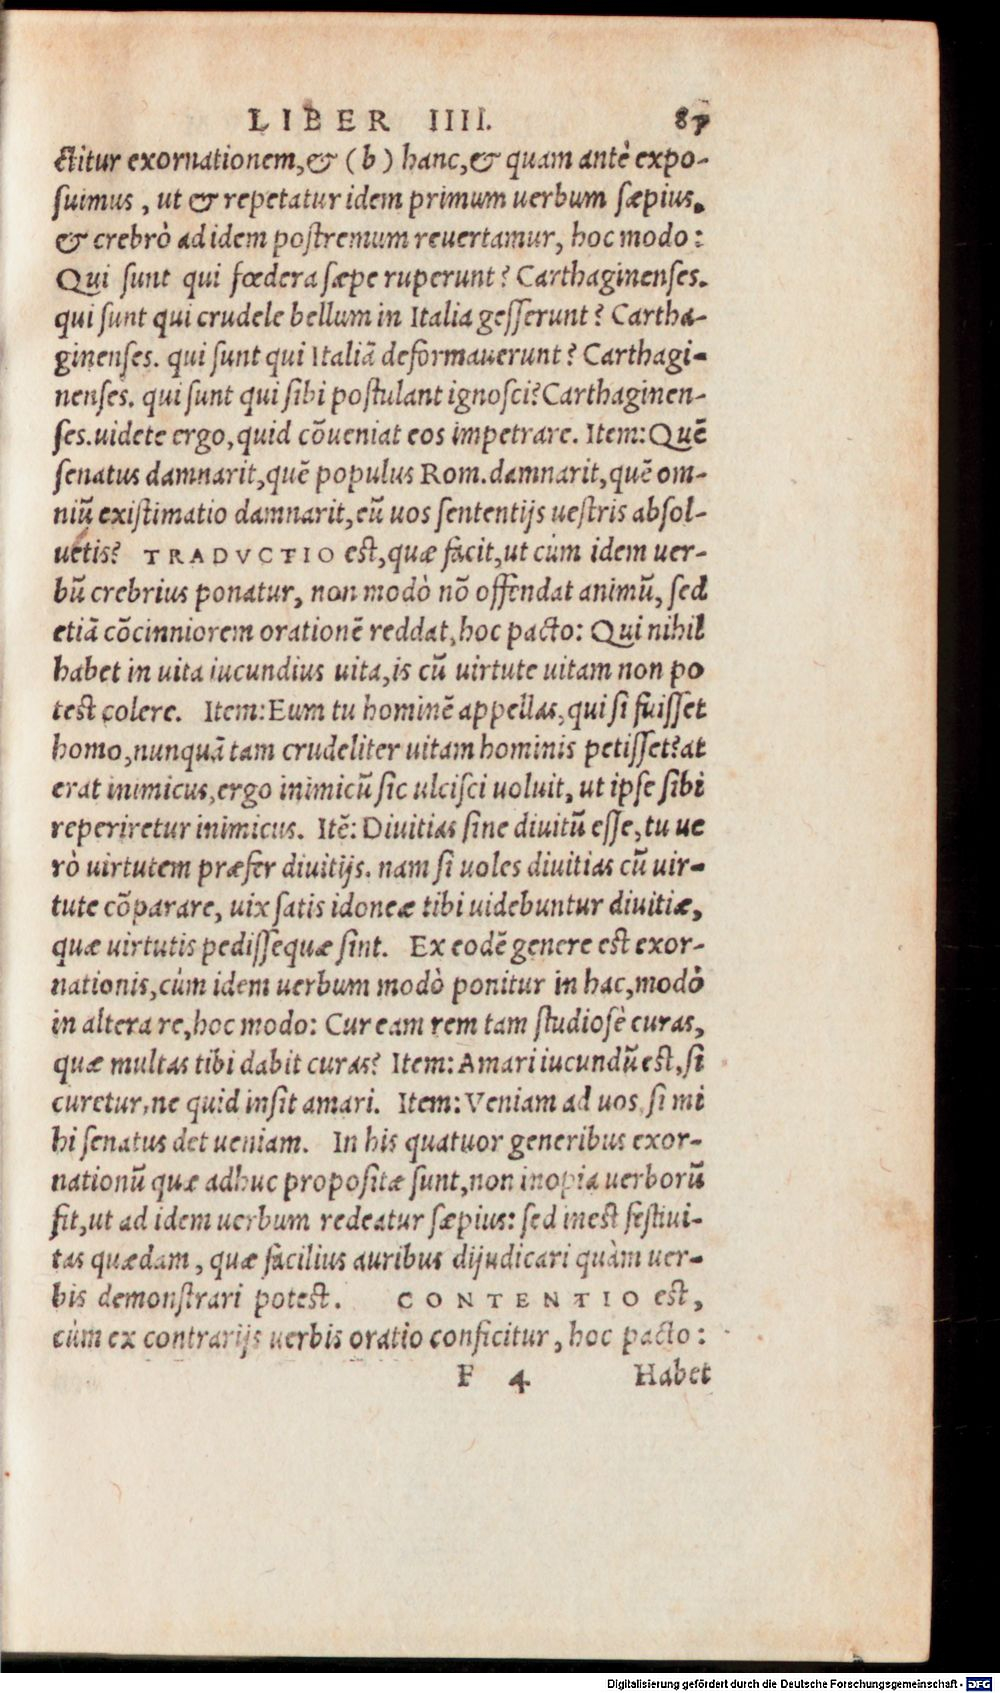 LIBER IIII. 87
ctitur exornationem, & (b) hanc, & quam antè expo-
suimus, ut & repetatur idem primum uerbum sæpius,
& crebrò ad idem postremum reuertamur, hoc modo:
Qui sunt qui fœdera sæpe ruperunt? Carthaginenses.
qui sunt qui crudele bellum in Italia gesserunt? Cartha-
ginenses. qui sunt qui Italiã deformauerunt? Carthagi-
nenses. qui sunt qui sibi postulant ignosci? Carthaginen-
ses. uidete ergo, quid cõueniat eos impetrare. Item: Quẽ
senatus damnarit, quẽ populus Rom. damnarit, quẽ om-
niũ existimatio damnarit, eũ uos sententijs uestris absol-
uetis? TRADVCTIO est, quæ facit, ut cùm idem uer-
bũ crebrius ponatur, non modò nõ offendat animũ, sed
etiã cõcinniorem orationẽ reddat, hoc pacto: Qui nihil
habet in uita iucundius uita, is cũ uirtute uitam non po
test colere. Item: Eum tu hominẽ appellas, qui si fuisset
homo, nunquã tam crudeliter uitam hominis petisset? at
erat inimicus, ergo inimicũ sic ulcisci uoluit, ut ipse sibi
reperiretur inimicus. Itẽ: Diuitias sine diuitũ esse, tu ue
rò uirtutem præfer diuitijs. nam si uoles diuitias cũ uir-
tute cõparare, uix satis idoneæ tibi uidebuntur diuitiæ,
quæ uirtutis pedissequæ sint. Ex eodẽ genere est exor-
nationis, cùm idem uerbum modò ponitur in hac, modò
in altera re, hoc modo: Cur eam rem tam studiosè curas,
quæ multas tibi dabit curas? Item: Amari iucundũ est, si
curetur, ne quid insit amari. Item: Veniam ad uos, si mi
hi senatus det ueniam. In his quatuor generibus exor-
nationũ quæ adhuc propositæ sunt, non inopia uerborũ
fit, ut ad idem uerbum redeatur sæpius: sed inest festiui-
tas quædam, quæ facilius auribus dijudicari quàm uer-
bis demonstrari potest. CONTENTIO est,
cùm ex contrarijs uerbis oratio conficitur, hoc pacto:
F 4 Habet
Digitalisierung gefördert durch die Deutsche Forschungsgemeinschaft - DFG